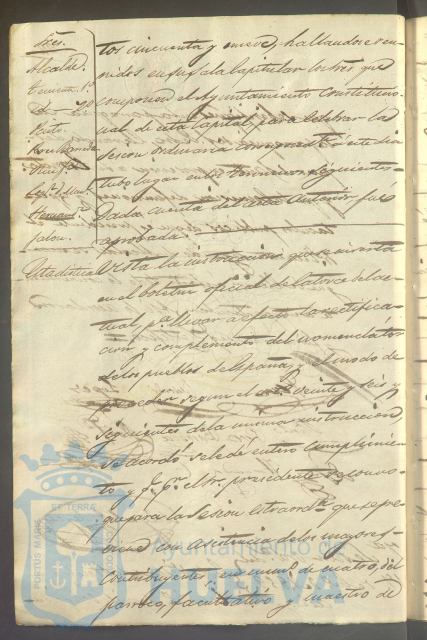 Sres.
Alcalde.
Teniente 1º
Id. 2º
Hernand.
Jalon.
tos cincuenta y nueve, hallandose reu-
nidos en su Sala Capitular los Sres. que
componen el Ayuntamiento Constitucio-
nal de esta Capital para celebrar la
sesion ordinaria correspte. á este dia
tubo lugar en los terminos siguientes-
Dada cuenta del acta anterior fue
aprobada.
Estadistica
Vista la instruccion que se inserta
en el boletin oficial de catorce del ac-
tual, pa. llevar a efecto la rectifica-
cion y complemento del nomenclator
de los pueblos de España, y el modo de
proceder segun el art. veinte y seis y
siguientes de la misma instruccion,
se acordó se le dé entero cumplimien-
to y qe. pr. el Sr. presidente se convo-
que para la sesion estraorda. que se pre-
viene con asistencia de los mayores
contribuyentes, en numo. de cuatro, del
parroco, facultativo y maestro de
PORTUS MARIS
ET TERRAE
Ayuntamiento de
HUELVA